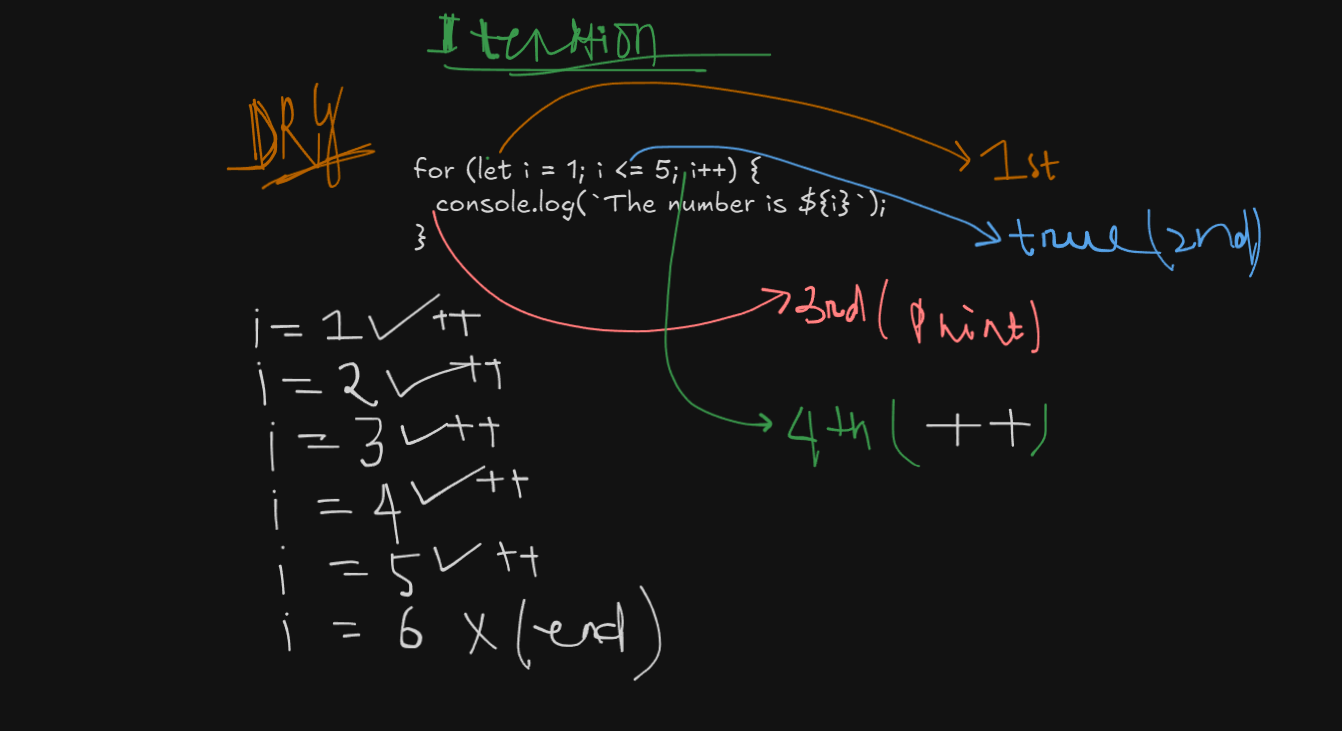 Iteration
DRY
for (let i = 1; i <= 5; i++) {
console.log(`The number is ${i}`);
}
1st
true (2nd)
3rd (print)
4th ( ++ )
i = 1 ✓ ++
i = 2 ✓ ++
i = 3 ✓ ++
i = 4 ✓ ++
i = 5 ✓ ++
i = 6 X (end)